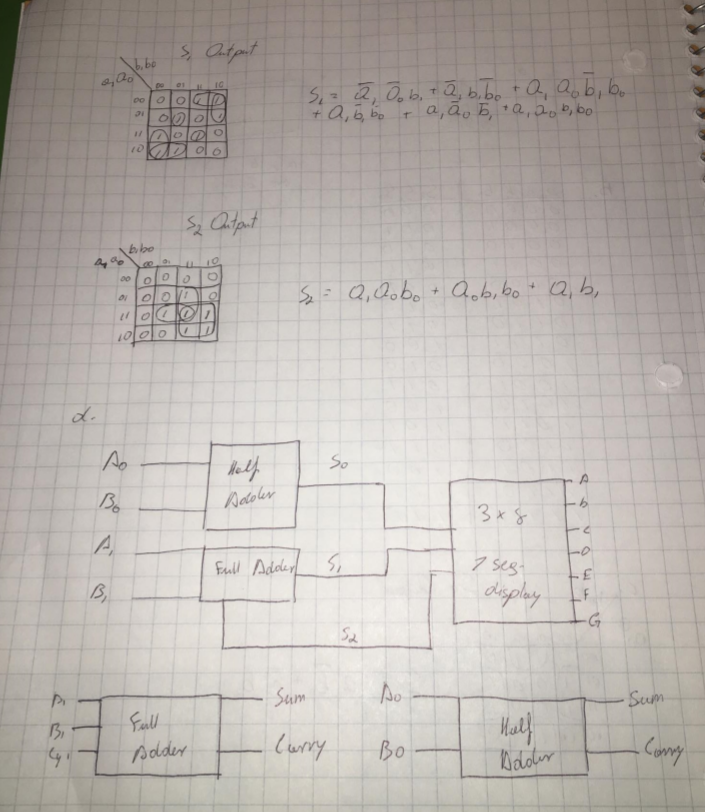 S₁ Output
b₁b₀
a₁a₀
00 01 11 10
00 0 0 1 1
01 0 1 0 1
11 1 0 1 0
10 1 1 0 0
S₁ = a̅₁ a̅₀ b₁ + a̅₁ b₁ b̅₀ + a₁ a₀ b̅₁ b₀
+ a₁ b̅₁ b̅₀ + a₁ a̅₀ b̅₁ + a₁ a₀ b₁ b₀
S₂ Output
b₁b₀
a₁a₀
00 01 11 10
00 0 0 0 0
01 0 0 1 0
11 0 1 1 1
10 0 0 1 1
S₂ = a₁ a₀ b₀ + a₀ b₁ b₀ + a₁ b₁
d.
A₀
B₀
Half
Adder
S₀
A₁
B₁
Full Adder
S₁
S₂
3 x 8
7 seg-
display
A
b
C
D
E
F
G
B₁
Full
Adder
Sum
Carry
A₀
B₀
Half
Adder
Sum
Carry